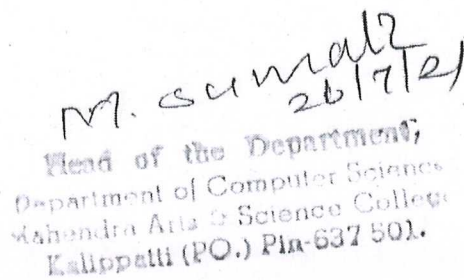 M. Sumathi
26/7/21
Head of the Department,
Department of Computer Science
Mahendra Arts & Science College
Kalippatti (PO.) Pin-637 501.